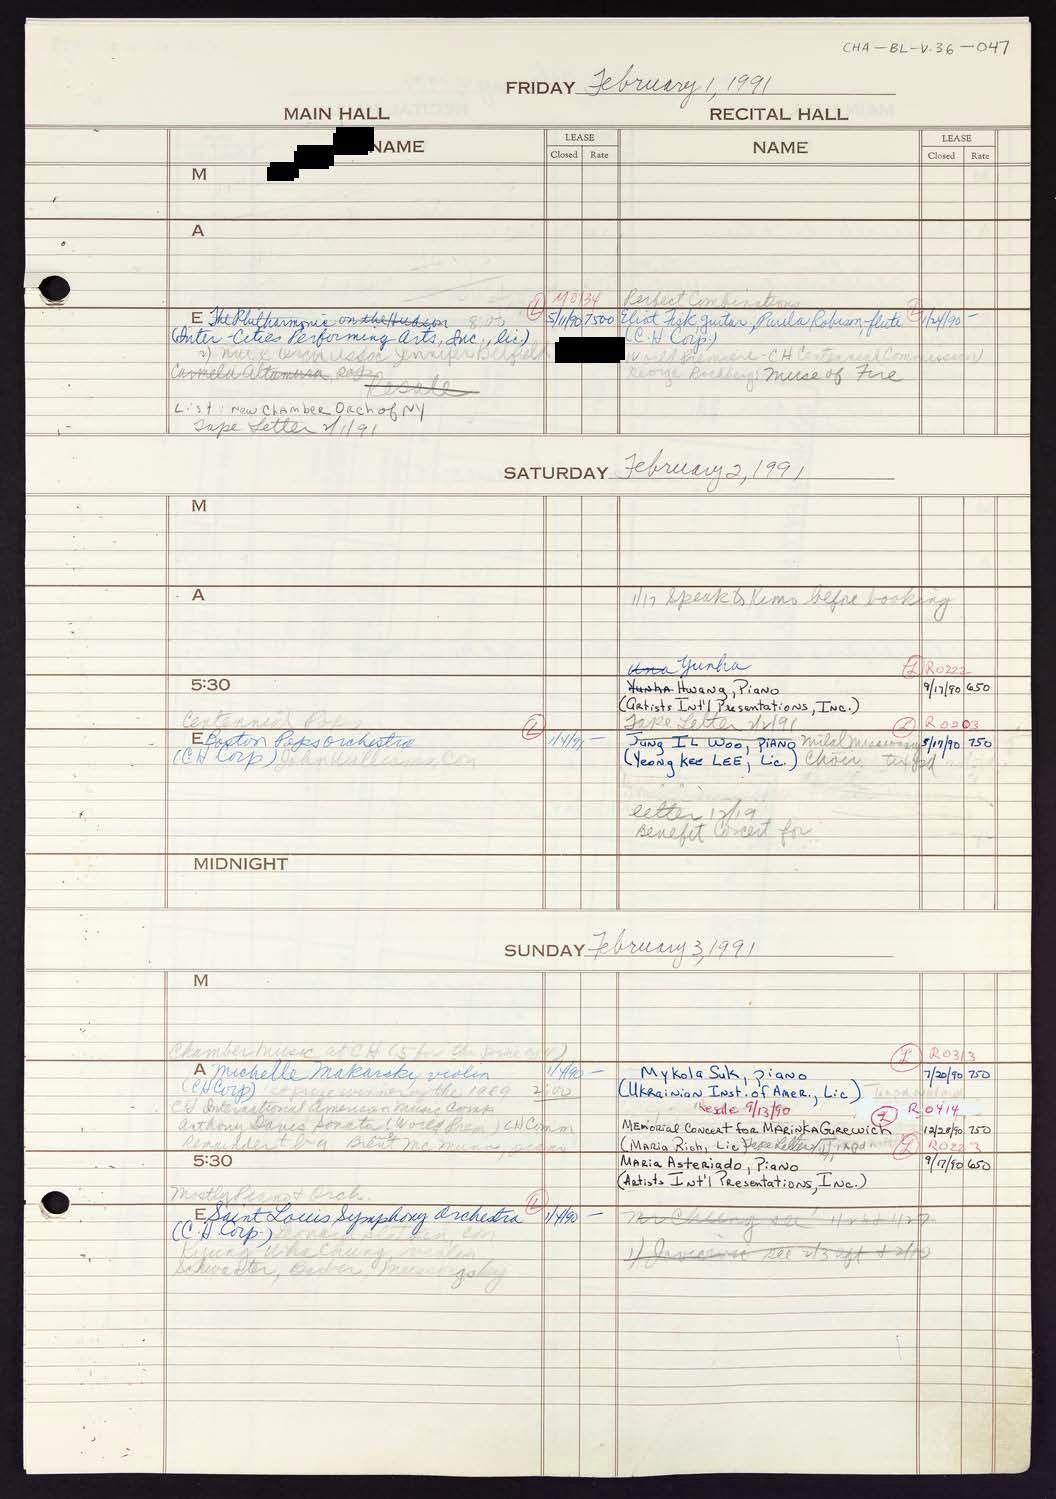 CHA-BL-V.36-047
FRIDAY February 1, 1991
MAIN HALL
RECITAL HALL
NAME
LEASE
Closed Rate
NAME
LEASE
Closed Rate
M
A
L M0134
E The Philharmonic on the Hudson 8:00 5/11/90 7500
(Inter-Cities Performing Arts, Inc., Lic)
Carmela Altamura, sop
Resale
List: New Chamber Orch of NY
Tape Letter 2/1/91
Perfect Combinations
Eliot Fisk, guitar, Paula Robison-flute L 1/24/90 -
(C H Corp.)
World Premiere - CH Centennial Commission
George Rochberg: Muse of Fire
SATURDAY February 2, 1991
M
A
1/17 Speak to Kimo before booking
5:30
Una Yunha L R0222
Yunha Hwang, Piano 9/17/90 650
(Artists Int'l Presentations, Inc.)
Tape Letter 2/2/91
Centennial Pops
E Boston Pops Orchestra L 1/4/91 -
(C H Corp) John Williams Con
L R0203
Jung IL Woo, Piano 5/17/90 750
(Yeong Kee LEE, Lic.) Choir
letter 12/19
Benefit Concert for
MIDNIGHT
SUNDAY February 3, 1991
M
Chamber music at CH (5 for the price of 4)
A Michelle Makarski, violin 1/4/90 -
(CH Corp) 2:00
CH International American Music Comp
Anthony Davis Sonata (World Prem) CH Comm
Brent McMunn, piano
L R0313
Mykola Suk, piano 7/20/90 750
(Ukrainian Inst. of Amer., Lic)
Resale 9/13/90
L R0414
Memorial Concert for Marinka Gurewich 12/28/90 750
(Maria Rich, Lic)
5:30
L R0223
Maria Asteriado, Piano 9/17/90 650
(Artists Int'l Presentations, Inc.)
Mostly Piano & Orch.
E Saint Louis Symphony Orchestra L 1/4/90 -
(C.H Corp.) Leonard Slatkin, con
Kyung Wha Chung, violin
Schwantner, Barber, Mussorgsky